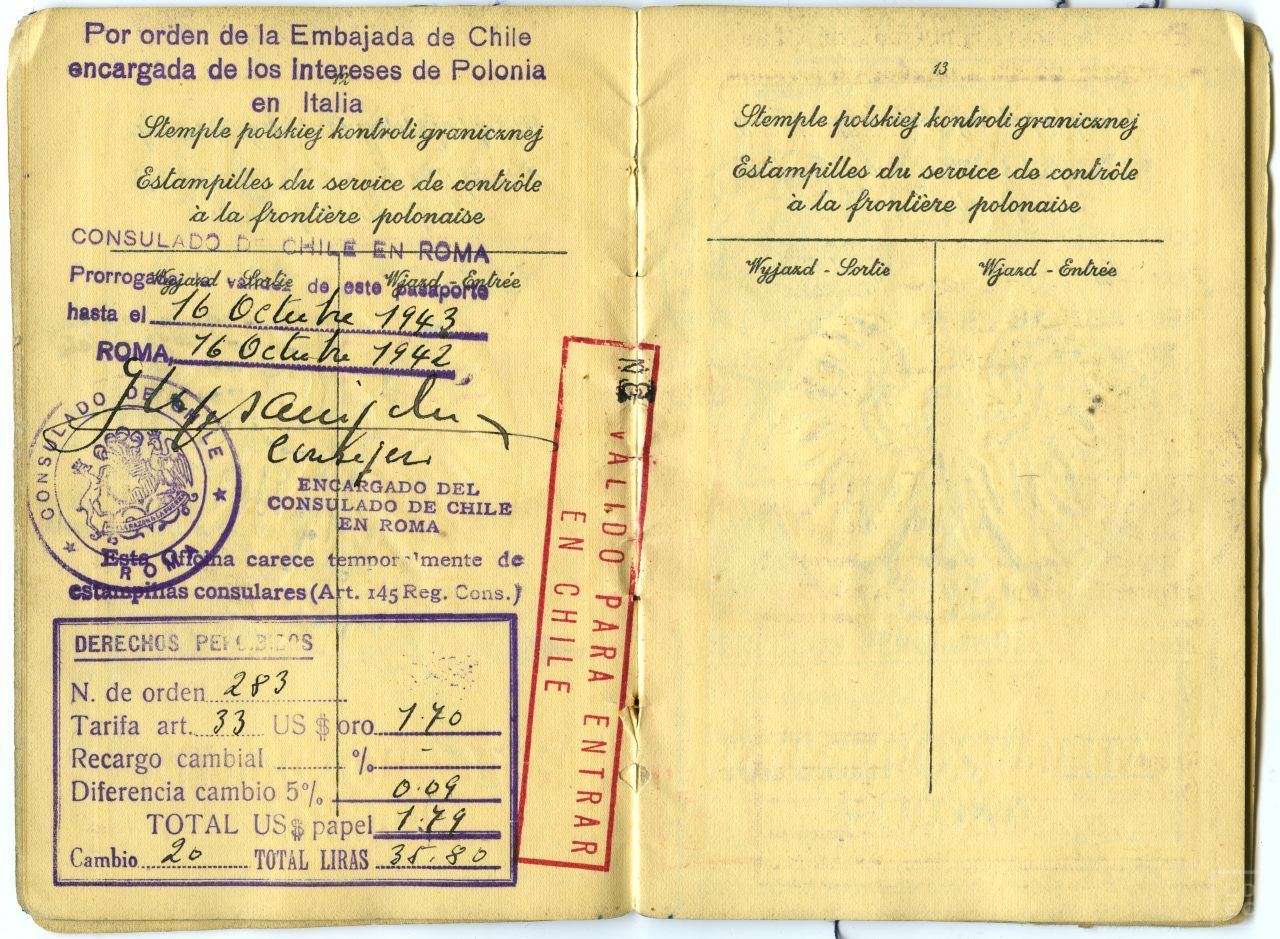 Por orden de la Embajada de Chile
encargada de los Intereses de Polonia
en Italia
12
Stemple polskiej kontroli granicznej
Estampilles du service de contrôle
à la frontière polonaise
CONSULADO DE CHILE EN ROMA
Prorrogada la validez de este pasaporte
Wyjazd - Sortie Wjazd - Entrée
hasta el 16 Octubre 1943
ROMA, 16 Octubre 1942
Consejero
CONSULADO DE CHILE
ROMA
ENCARGADO DEL
CONSULADO DE CHILE
EN ROMA
Esta Oficina carece temporalmente de
estampillas consulares (Art. 145 Reg. Cons.)
DERECHOS PERCIBIDOS
N. de orden 283
Tarifa art. 33 US $ oro 1.70
Recargo cambial % -
Diferencia cambio 5% 0.09
TOTAL US$ papel 1.79
Cambio 20 TOTAL LIRAS 35.80
VALIDO PARA ENTRAR
EN CHILE
13
Stemple polskiej kontroli granicznej
Estampilles du service de contrôle
à la frontière polonaise
Wyjazd - Sortie Wjazd - Entrée